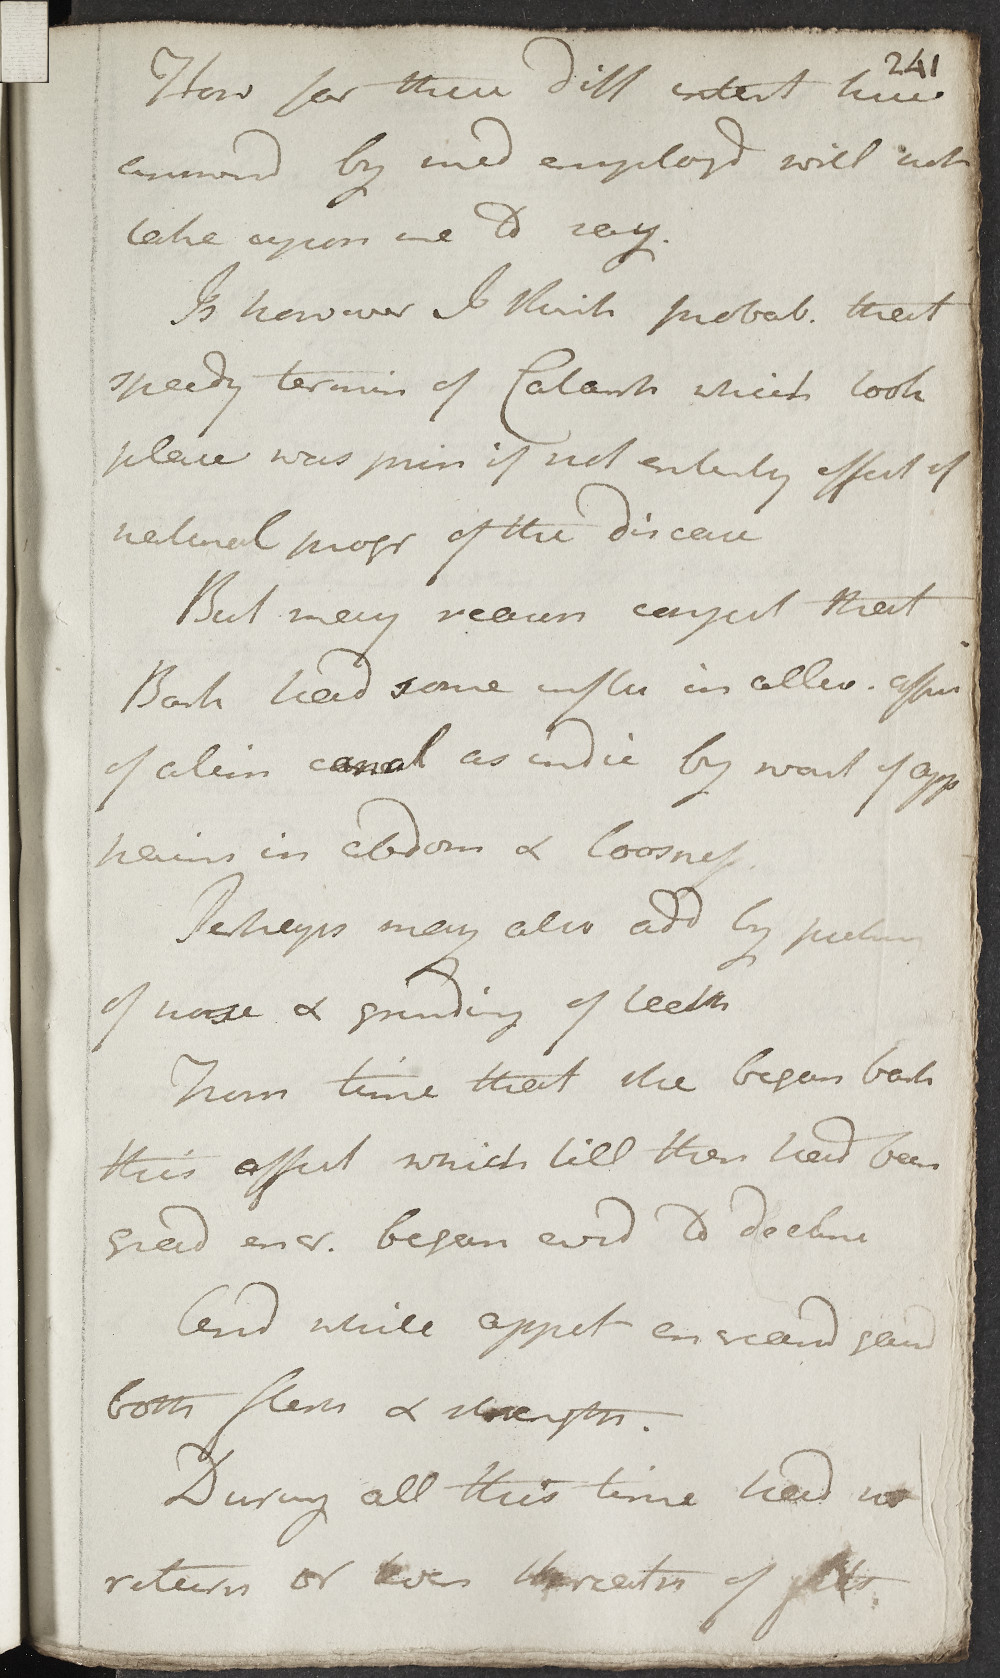 241
How far these diff intent here
answerd by med employd will not
take upon me to say.
Is however I think probab. that
speedy termin of Catarrh which took
place was prin if not entirely effect of
natural progr of the disease
But may reason conject that
Bark had some influ in allev. affn
of alim canal as indic by want of app
pains in abdom & loosness.
Perhaps may also add by picking
of nose & grinding of teeth
From time that she began bark
this affect which till then had been
grad encr. began evid to decline
And while appet encreasd gaind
both flesh & strength.
During all this time had no
return or even threatn of fits.